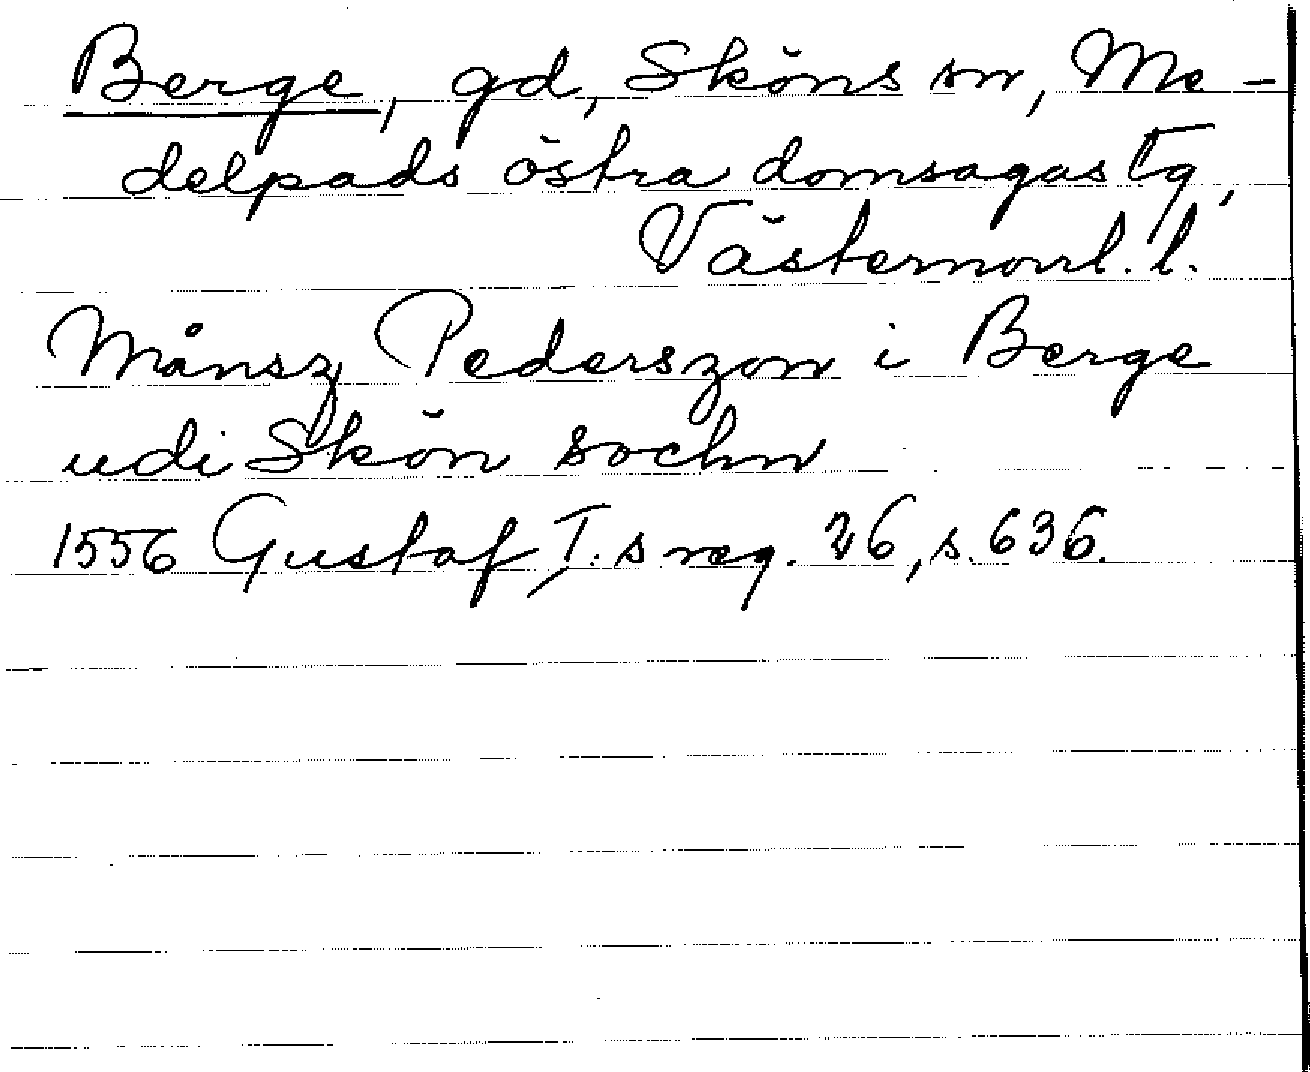 Berge, gd, Sköns sn, Me-
delpads östra domsagas tg,
Västernorrl. l.
Månsz Pederszon i Berge
udi Skön sochn
1556 Gustaf I:s reg. 26, s. 636.